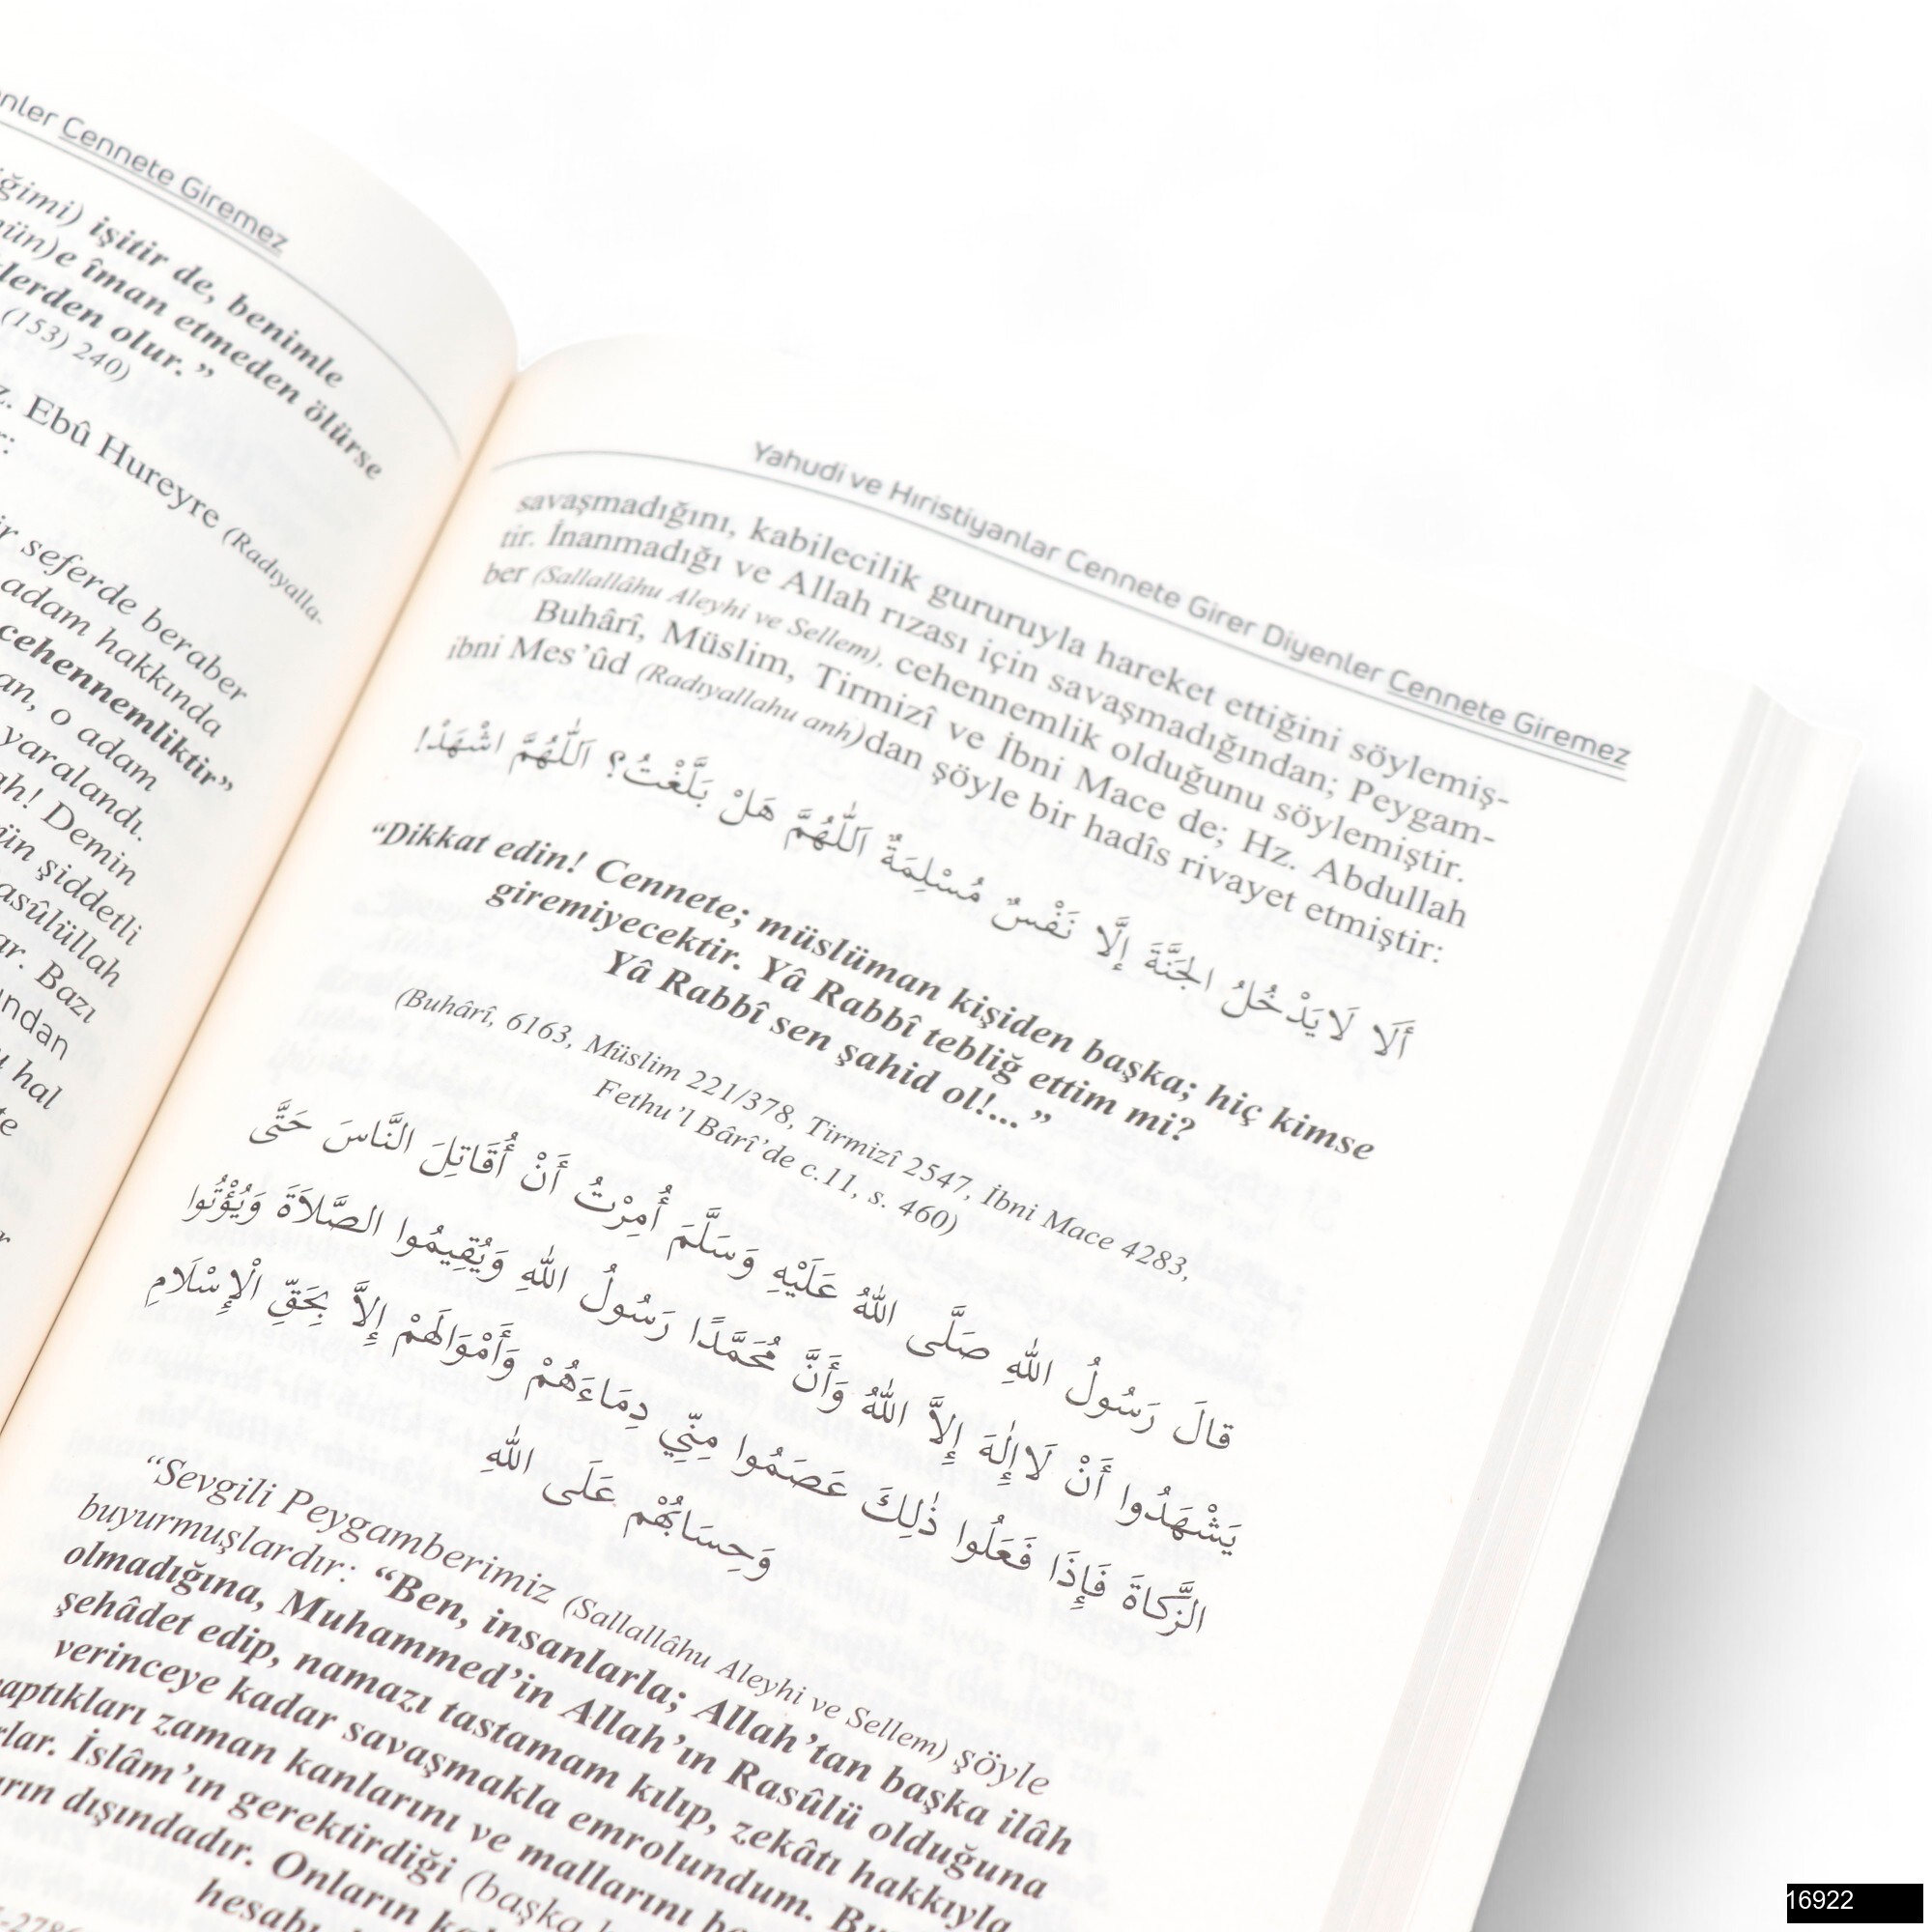 Cennete Giremez
işitir de, benimle
îman etmeden ölürse
olur.”
(153) 240)
Ebû Hureyre (Radıyalla-
seferde beraber
adam hakkında
cehennemliktir”
o adam
yaralandı.
Demin
şiddetli
Bazı
hal
Yahudi ve Hıristiyanlar Cennete Girer Diyenler Cennete Giremez
savaşmadığını, kabilecilik gururuyla hareket ettiğini söylemiş-
tir. İnanmadığı ve Allah rızası için savaşmadığından; Peygam-
ber (Sallallâhu Aleyhi ve Sellem), cehennemlik olduğunu söylemiştir.
Buhârî, Müslim, Tirmizî ve İbni Mace de; Hz. Abdullah
ibni Mes’ûd (Radıyallahu anh)dan şöyle bir hadîs rivayet etmiştir:
أَلَا لَا يَدْخُلُ الْجَنَّةَ إِلَّا نَفْسٌ مُسْلِمَةٌ اَللّٰهُمَّ هَلْ بَلَّغْتُ؟ اَللّٰهُمَّ اشْهَدْ!
“Dikkat edin! Cennete; müslüman kişiden başka; hiç kimse
giremiyecektir. Yâ Rabbî tebliğ ettim mi?
Yâ Rabbî sen şahid ol!... ”
(Buhârî, 6163, Müslim 221/378, Tirmizî 2547, İbni Mace 4283,
Fethu’l Bârî’de c.11, s. 460)
قالَ رَسُولُ اللهِ صَلَّى اللهُ عَلَيْهِ وَسَلَّمَ أُمِرْتُ أَنْ أُقَاتِلَ النَّاسَ حَتَّى
يَشْهَدُوا أَنْ لَا إِلٰهَ إِلاَّ اللهُ وَأَنَّ مُحَمَّدًا رَسُولُ اللهِ وَيُقِيمُوا الصَّلاَةَ وَيُؤْتُوا
الزَّكاةَ فَإِذَا فَعَلُوا ذٰلِكَ عَصَمُوا مِنِّي دِمَاءَهُمْ وَأَمْوَالَهُمْ إِلاَّ بِحَقِّ الْإِسْلَامِ
وَحِسَابُهُمْ عَلَى اللهِ
“Sevgili Peygamberimiz (Sallallâhu Aleyhi ve Sellem) şöyle
buyurmuşlardır: “Ben, insanlarla; Allah’tan başka ilâh
olmadığına, Muhammed’in Allah’ın Rasûlü olduğuna
şehâdet edip, namazı tastamam kılıp, zekâtı hakkıyla
verinceye kadar savaşmakla emrolundum.
zaman kanlarını ve mallarını
İslâm’ın gerektirdiği (başka
dışındadır. Onların
16922